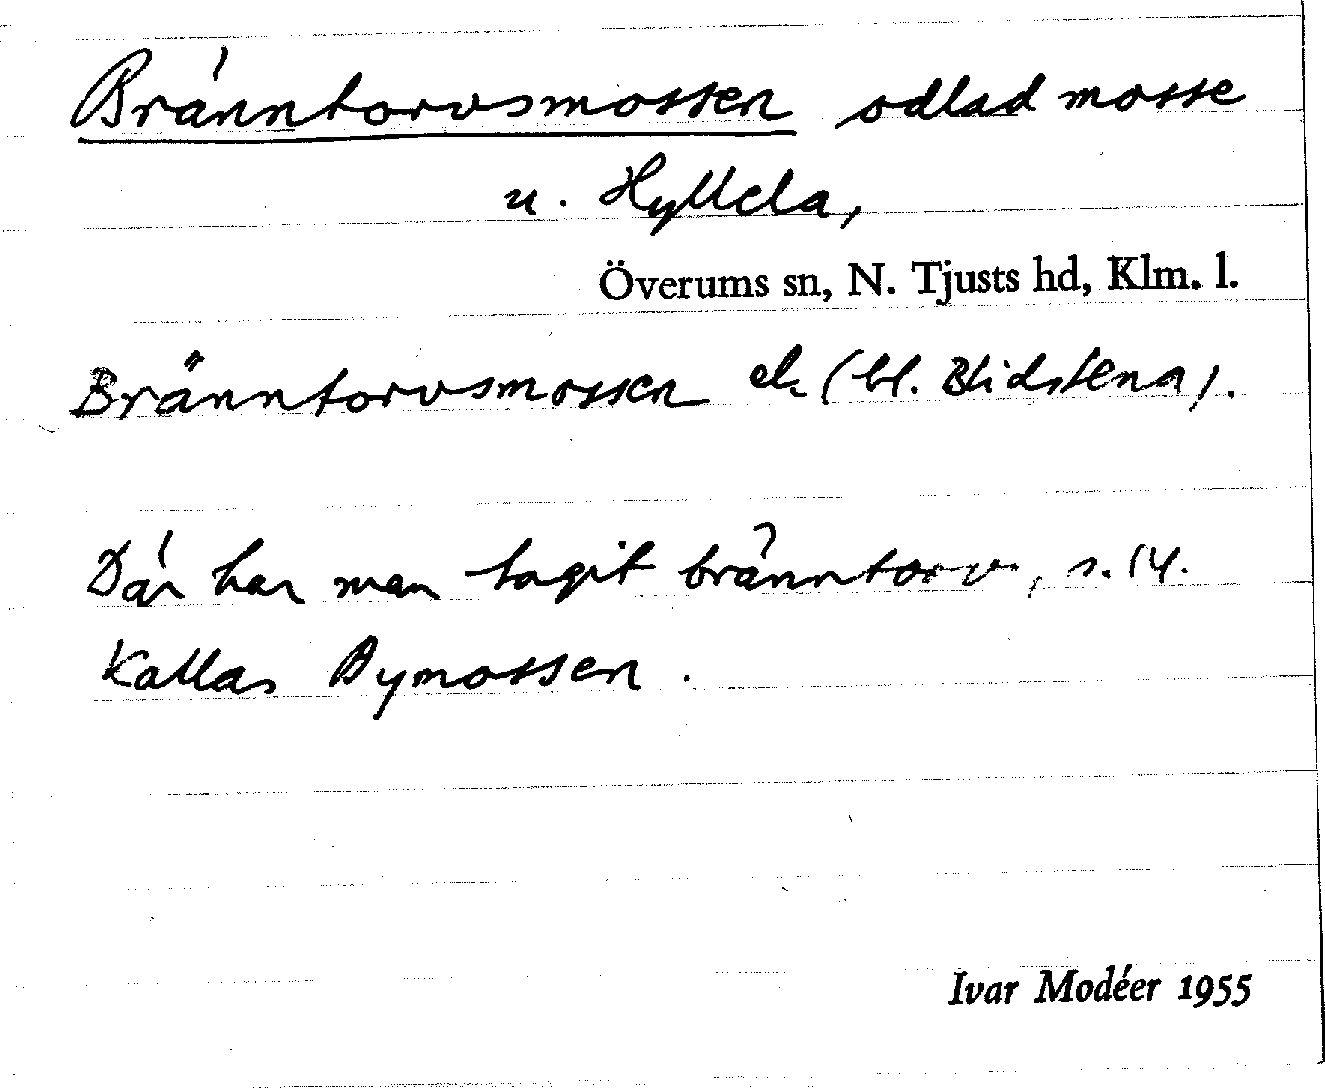 Bränntorvsmossen odlad mosse
u. Hyllela,
Överums sn, N. Tjusts hd, Klm. l.
Bränntorvsmossen ek (bl. Blidstena).
Där har man tagit bränntorv, s. 14.
Kallas Dymossen.
Ivar Modéer 1955